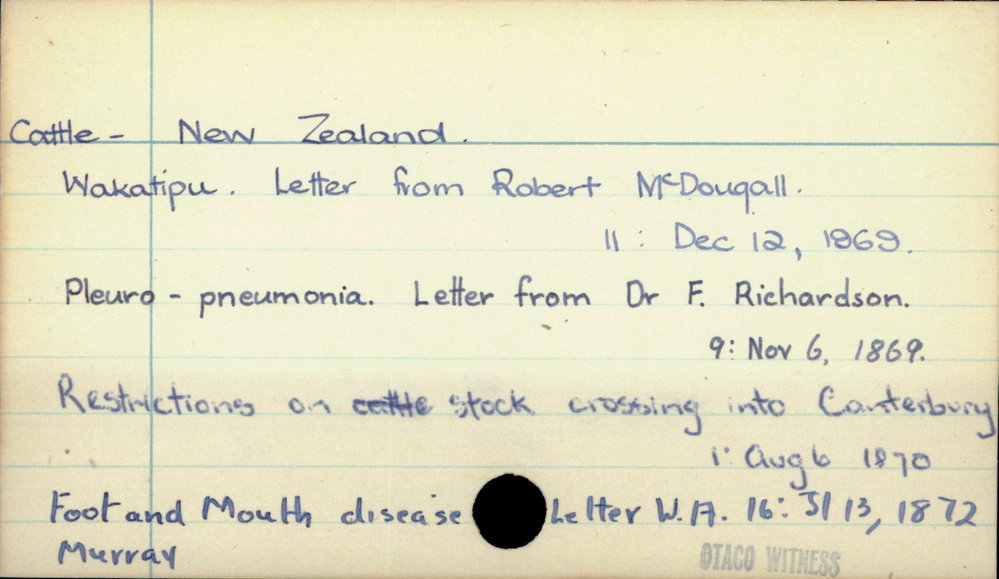 Cattle - New Zealand.
Wakatipu. Letter from Robert McDougall.
11: Dec 12, 1869.
Pleuro-pneumonia. Letter from Dr F. Richardson.
9: Nov 6, 1869.
Restrictions on cattle stock crossing into Canterbury
1: Aug 6 1870
Foot and Mouth disease Letter W.A. 16: Jl 13, 1872
Murray
OTAGO WITNESS